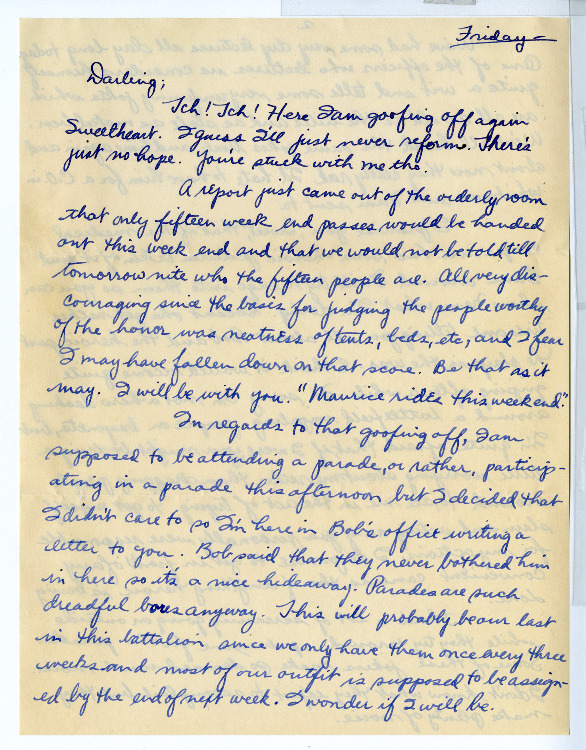 Friday—
Darling;
Tch! Tch! Here I am goofing off again
Sweetheart. I guess I'll just never reform. There's
just no hope. You're stuck with me tho.
A report just came out of the orderly room
that only fifteen week end passes would be handed
out this week end and that we would not be told till
tomorrow nite who the fifteen people are. All very dis-
couraging since the basis for judging the people worthy
of the honor was neatness of tents, beds, etc, and I fear
I may have fallen down on that score. Be that as it
may. I will be with you. "Maurice rides this weekend".
In regards to that goofing off, I am
supposed to be attending a parade, or rather, particip-
ating in a parade this afternoon but I decided that
I didn't care to so I'm here in Bob's office writing a
letter to you. Bob said that they never bothered him
in here so it's a nice hideaway. Parades are such
dreadful bores anyway. This will probably be our last
in this battalion since we only have them once every three
weeks and most of our outfit is supposed to be assign-
ed by the end of next week. I wonder if I will be.